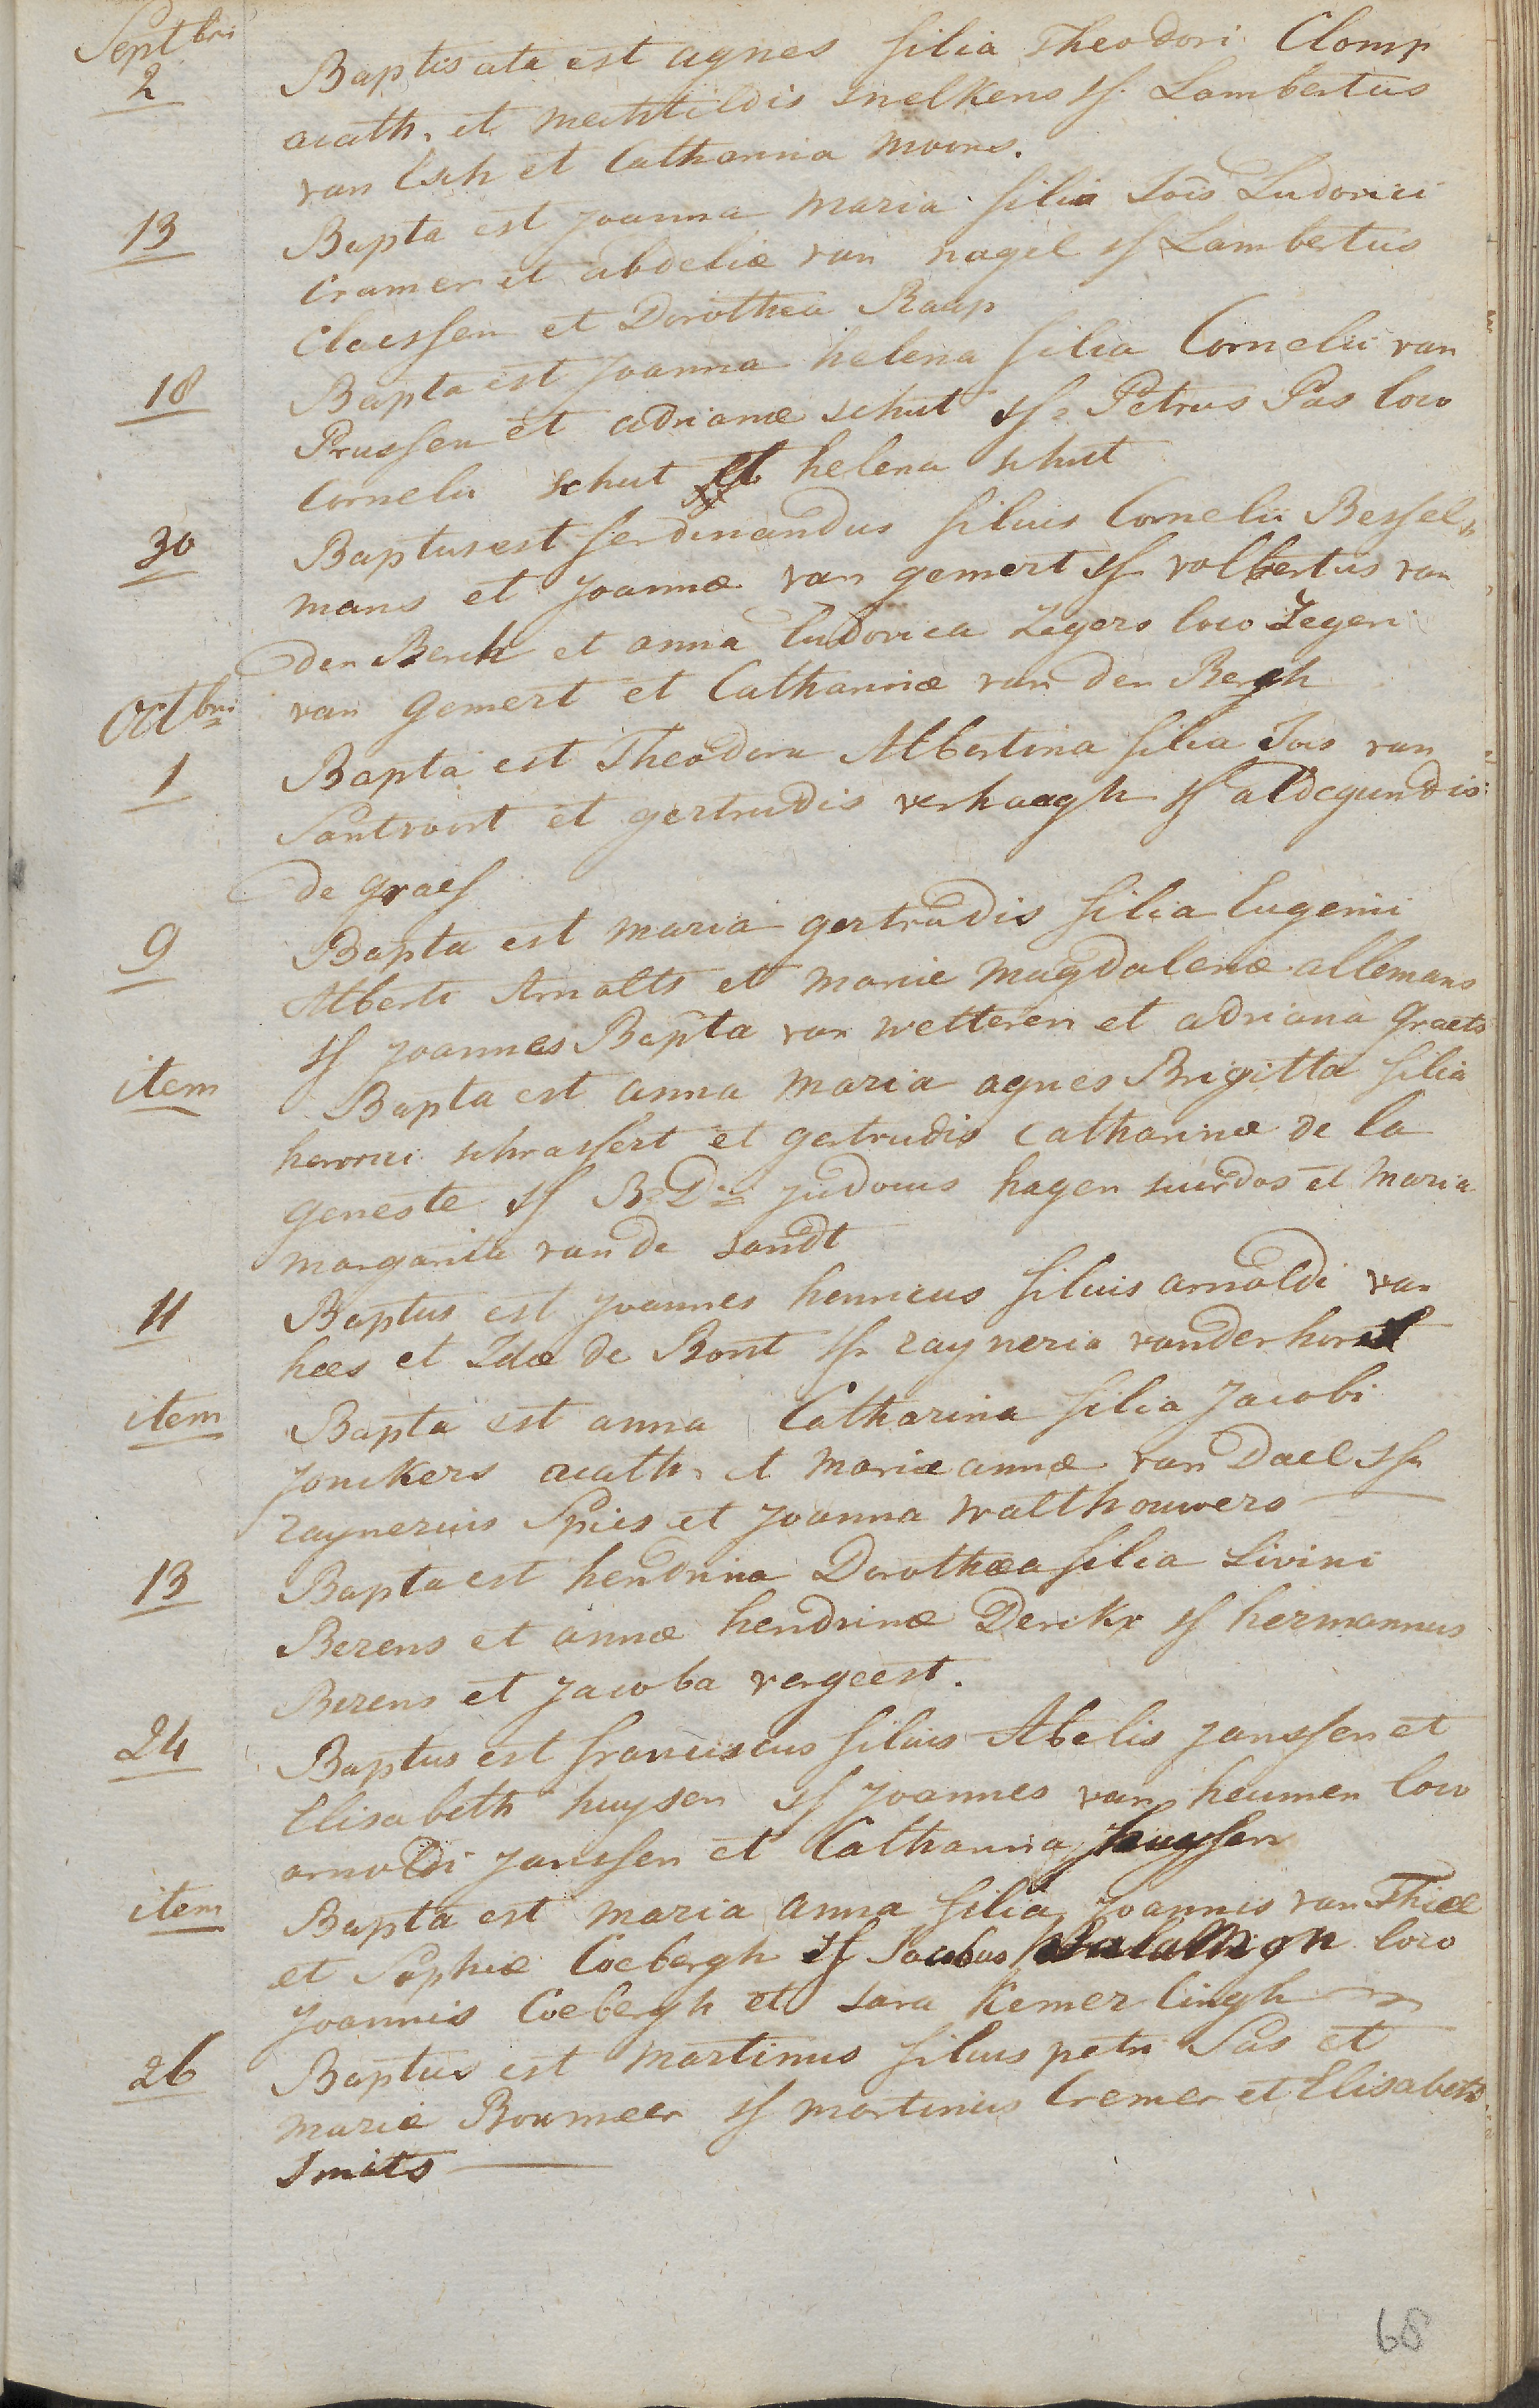 Septbri
2
Baptisata est agnes filia Theodori Clomp
acath. et mechtildis snelkens sf. Lambertus
van Esch et Catharina moors.
13
Bapta est joanna maria filia Jois Ludovici
Cramer et abdeliæ van nagel sf Lambertus
Claessen et Dorothea Raap
18
Bapta est joanna helena filia Cornelii van
Prussen et adrianæ schut sf. Petrus Pas loco
Cornelii schut et helena schut
30
Baptus est ferdinandus filius Cornelii Bessel,,
mans et joannæ van gemert sf volbertus van
den Berch et anna ludovica Zegers loco Zegeri
van gemert et Catharinæ van den Bergh
Octbri
1
Bapta est Theodora Albertina filia Jois van
Santvoort et gertrudis verhaagh sf aldegundis
de graef
9
Bapta est maria gertrudis filia Eugenii
Alberti Arnolts et mariæ magdalenæ allemans
sf joannes Bapta van wetteren et adriana Graets
item
Bapta est anna maria agnes Brigitta filia
henrici schrassert et gertrudis catharinæ de la
geneste sf R: D: judocus hagen sacrdos et maria
margarita van de sandt
11
Baptus est joannes henricus filius arnoldi van
hees et Idæ de Bont sf. rayneria van der horst
item
Bapta est anna Catharina filia jacobi
jonckers acath. et mariæ annæ van Dael sf.
raynerius Spies et joanna walthouwers
13
Bapta est hendrina Dorothæa filia Livini
Berens et annæ hendrinæ Derckx sf hermannus
Berens et jacoba vergeest.
24
Baptus est franciscus filius Abelis janssen et
Elisabeth huysen sf joannes van heumen loco
arnoldi janssen et Catharina huyssen
item
Bapta est maria anna filia joannis van Thiel
et Sophiæ Coebergh sf Jacobus loco
joannis Coebergh et sara Kemerlingh
26
Baptus est martinus filius petri Pas et
mariæ Boumeer sf martinus Cremer et Elisabeth
smits
68